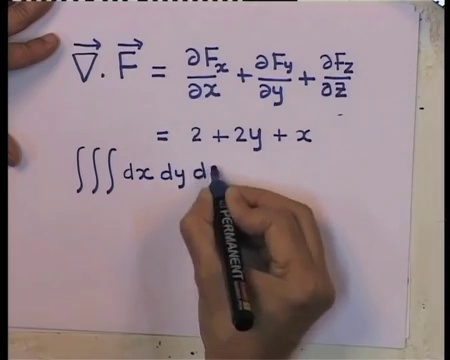 ∇⃗ . F⃗ = ∂Fx/∂x + ∂Fy/∂y + ∂Fz/∂z
= 2 + 2y + x
∫∫∫ dx dy d
PERMANENT